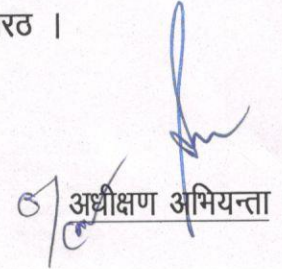 रठ ।
अधीक्षण अभियन्ता